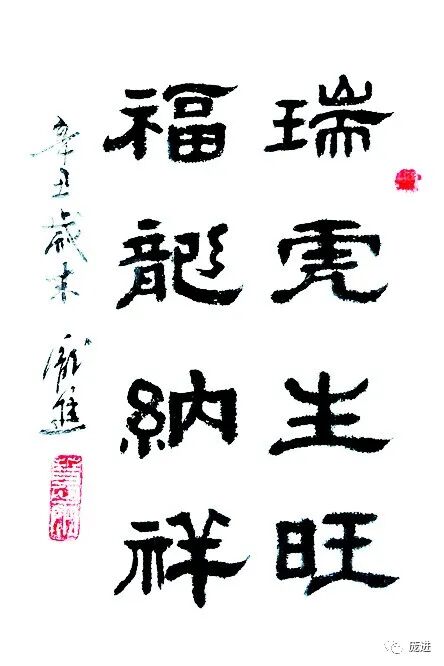 瑞虎生旺
福龍納祥
辛丑歲末 龐進
庞进